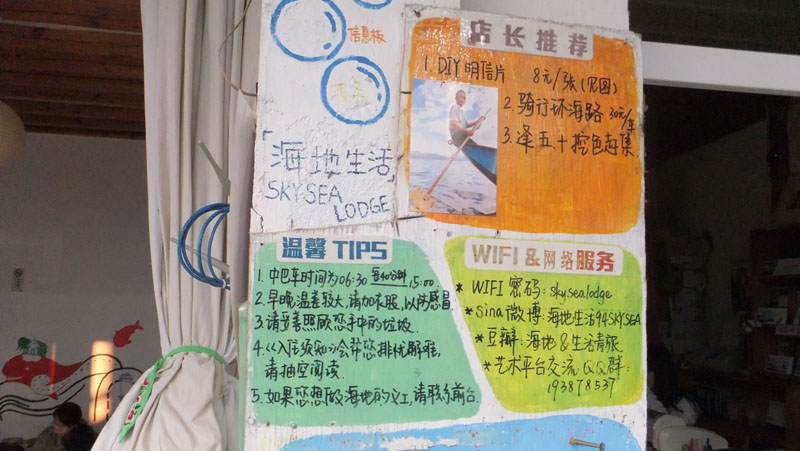 信息板
「海地生活」
SKYSEA
LODGE
店长推荐
1. DIY 明信片 8元/张(见图)
2. 骑行环海路 30元/车
3. 逢五十挖色赶集
温馨 TIPS
1. 中巴车时间为06:30 每40分钟 15:00
2. 早晚温差较大,请加衣服,以防感冒.
3. 请妥善照顾您手中的垃圾.
4. 《入住须知》会帮您排忧解难,
请抽空阅读.
5. 如果您想做海地的义工,请联络前台.
WIFI & 网络服务
* WIFI 密码: skysealodge
* Sina 微博: 海地生活94SKYSEA
* 豆瓣: 海地&生活青旅.
* 艺术平台交流 QQ群:
193878537